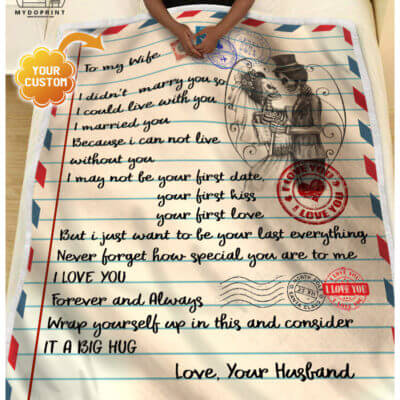 MYDOPRINT
YOUR
CUSTOM
To my Wife
I didn't marry you so
I could live with you
I married you
Because i can not live
without you
I may not be your first date,
your first kiss
your first love
But i just want to be your last everything
Never forget how special you are to me
I LOVE YOU
Forever and Always
Wrap yourself up in this and consider
IT A BIG HUG
Love, Your Husband
I LOVE YOU
I LOVE YOU
I LOVE YOU